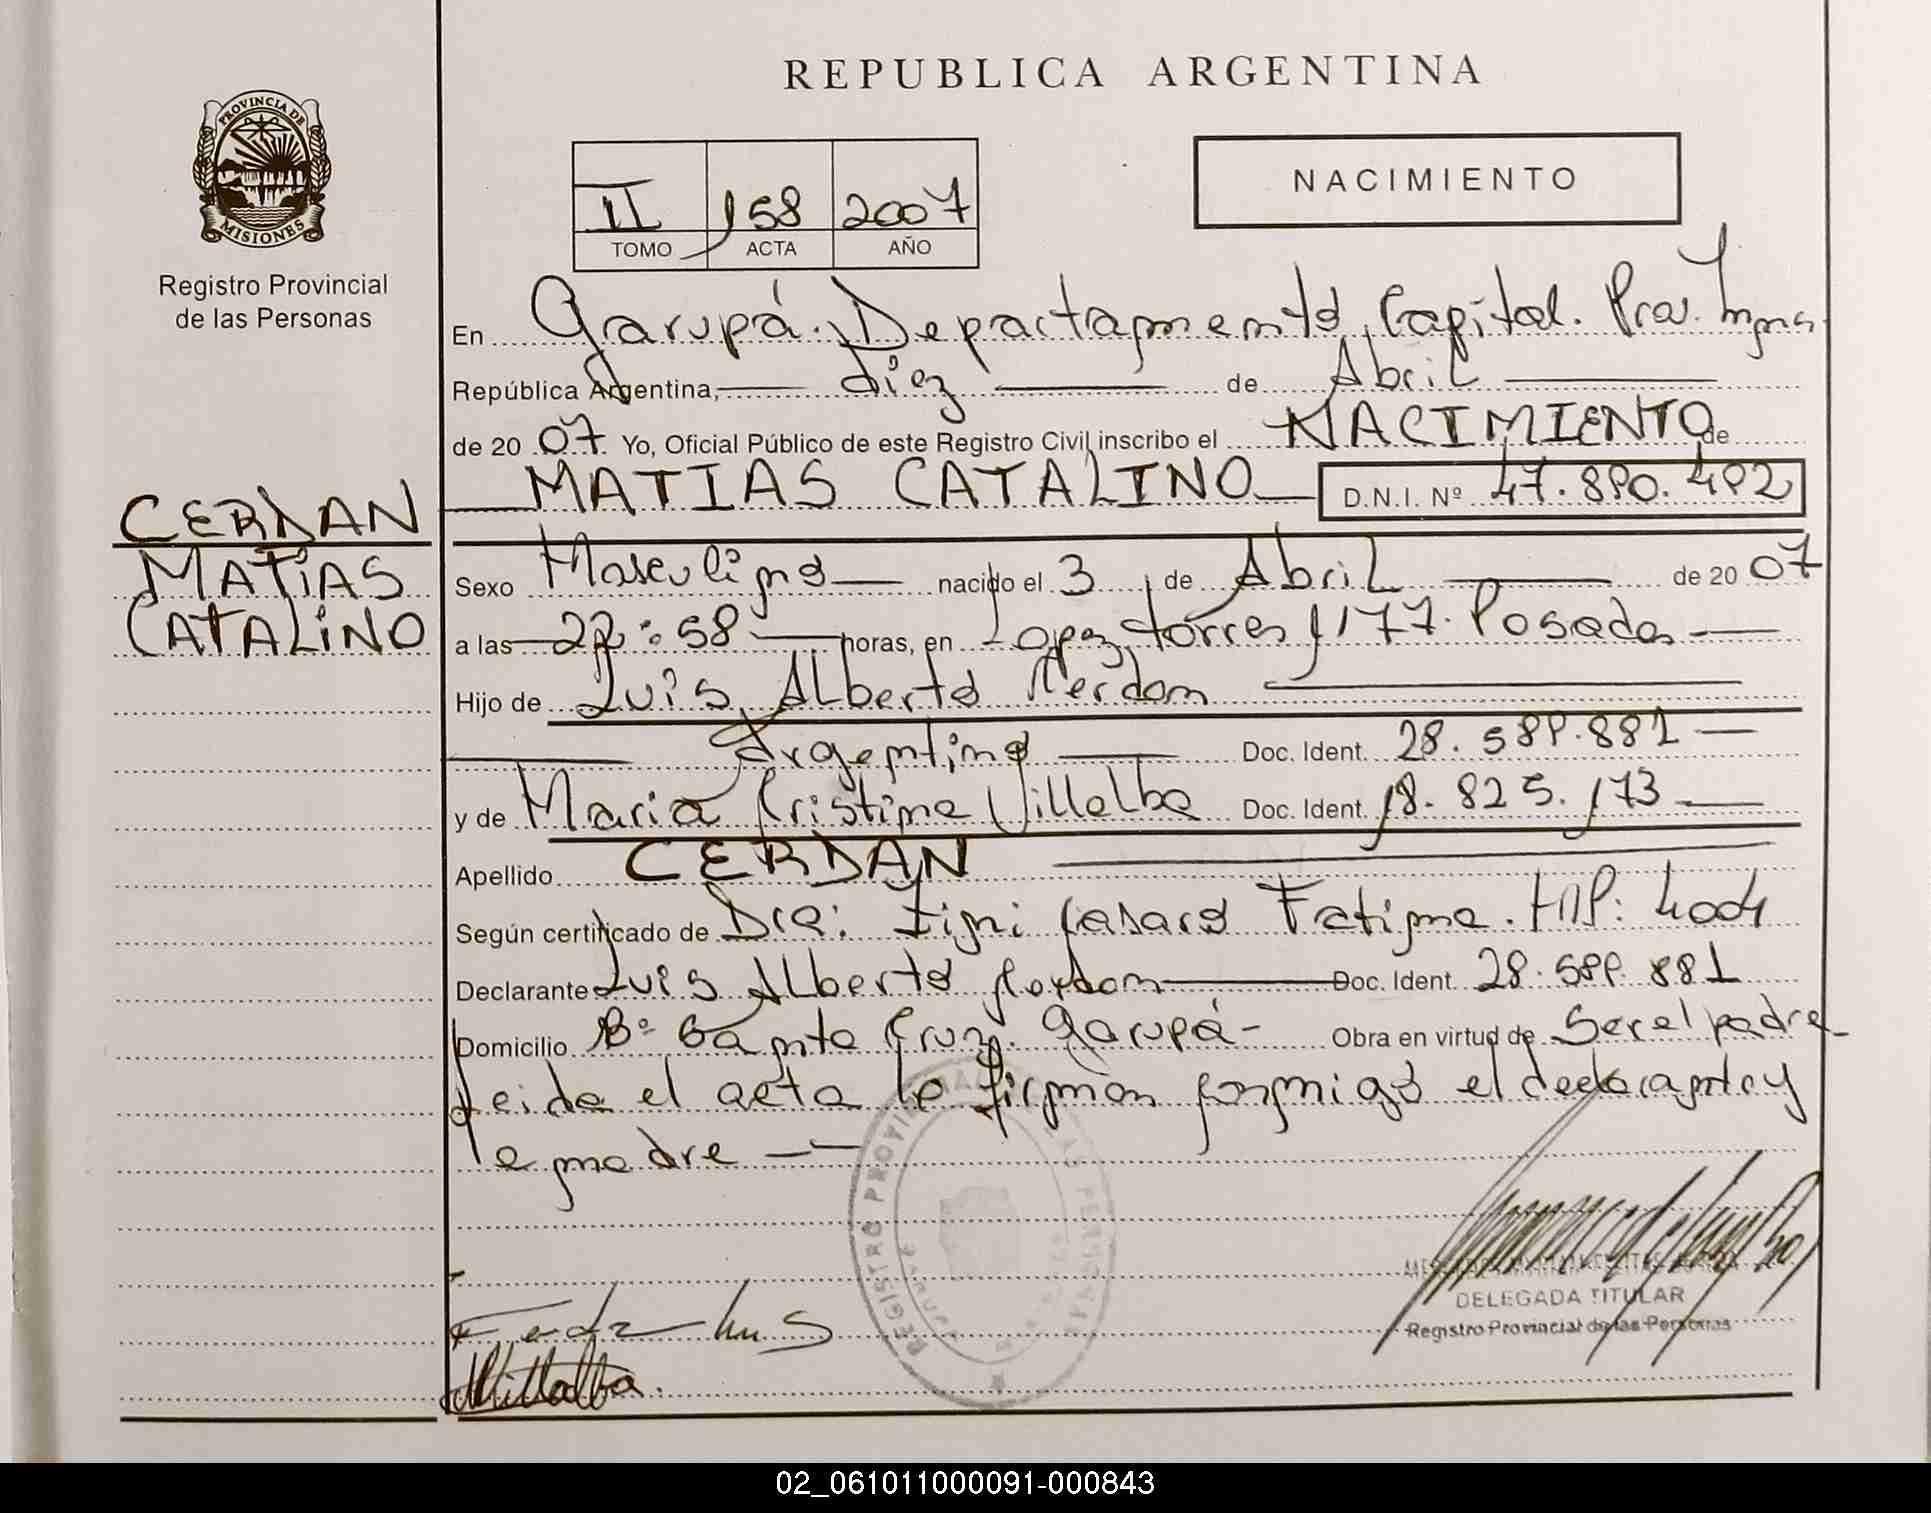 PROVINCIA DE
MISIONES
Registro Provincial
de las Personas
CERDAN
MATIAS
CATALINO
REPUBLICA ARGENTINA
II 158 2007
TOMO ACTA AÑO
NACIMIENTO
En Garupá. Departamento Capital. Prov. Mnes
República Argentina, diez de Abril
de 2007 Yo, Oficial Público de este Registro Civil inscribo el NACIMIENTO de
MATIAS CATALINO D.N.I. Nº
Sexo Masculino nacido el 3 de Abril de 2007
a las 22:58 horas, en Lopez torres 1177. Posadas
Hijo de Luis Alberto Cerdan
Argentino Doc. Ident.
y de Maria Cristina Villalba Doc. Ident. 18.825.173
Apellido CERDAN
Según certificado de Dra: Fatima. M.P:
Declarante Luis Alberto Cerdan Doc. Ident.
Domicilio Bº Santa Cruz. Garupá - Obra en virtud de Ser el padre
Leida el acta la firman conmigo el declarante y
la madre
REGISTRO PROVINCIAL DE LAS PERSONAS
DELEGADA TITULAR
Registro Provincial de las Personas
Villalba.
02_061011000091-000843